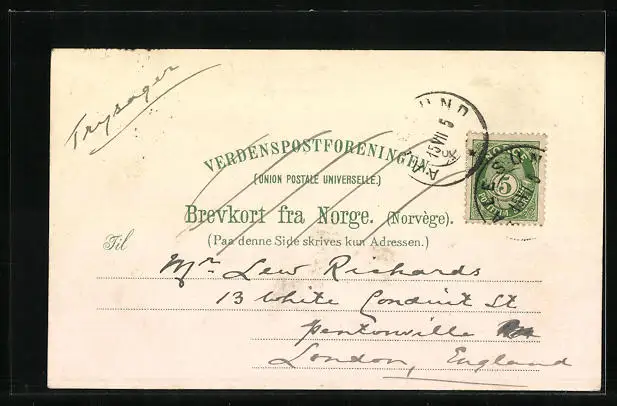 Trysager
VERDENSPOSTFORENINGEN
(UNION POSTALE UNIVERSELLE.)
Brevkort fra Norge. (Norvège).
(Paa denne Side skrives kun Adressen.)
Til
Mr. Lew Richards
13 White Conduit St
Pentonville
London, England
AALESUND
15 VII 5
NORGE
5
AALESUND